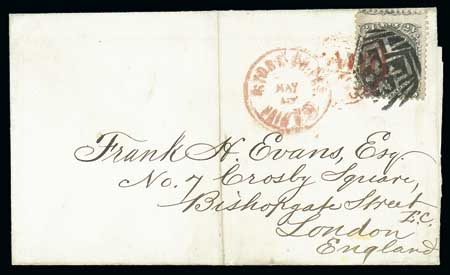 MAY
Frank H. Evans, Esq.
No. 7 Crosby Square,
Bishopgate Street
E.C.
London
England